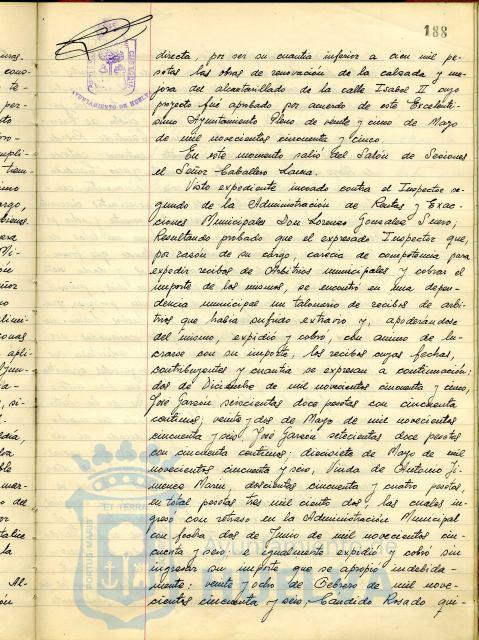 188
AYUNTAMIENTO DE HUELVA
directa, por ser su cuantia inferior a cien mil pe-
setas las obras de renovación de la calzada y me-
jora del alcantarillado de la calle Isabel II cuyo
proyecto fué aprobado por acuerdo de este Excelentí-
simo Ayuntamiento Pleno de veinte y cinco de Mayo
de mil novecientos cincuenta y cinco.
En este momento salió del Salón de Sesiones
el Señor Caballero Launa.
Visto expediente incoado contra el Inspector se-
gundo de la Administración de Rentas y Exac-
ciones Municipales Don Lorenzo Gonzalez Suero;
Resultando probado que el expresado Inspector que,
por razón de su cargo, carecia de competencia para
expedir recibos de Arbitrios municipales y cobrar el
importe de los mismos, se encontró en una depen-
dencia municipal un talonario de recibos de arbi-
trios que habia sufrido extravio y, apoderándose
del mismo, expidió y cobró, con animo de lu-
crarse con su importe, los recibos cuyas fechas,
contribuyentes y cuantia se expresan a continuación:
dos de Diciembre de mil novecientos cincuenta y cinco,
José Garzón setecientas doce pesetas con cincuenta
centimos; veinte y dos de Mayo de mil novecientos
cincuenta y seis, José Garzón setecientas doce pesetas
con cincuenta centimos; diecisiete de Mayo de mil
novecientos cincuenta y seis, Viuda de Antonio Ji-
menez Marin, doscientas cincuenta y cuatro pesetas,
en total pesetas tres mil ciento dos, las cuales in-
gresó con retraso en la Administración Municipal
con fecha dos de Junio de mil novecientos cin-
cuenta y seis, e igualmente expidió y cobró sin
ingresar su importe que se apropió indebida-
mente: veinte y ocho de Febrero de mil nove-
cientos cincuenta y seis, Candido Rosado qui-
Ayuntamiento de
HUELVA
PORTUS MARIS ET TERRAE